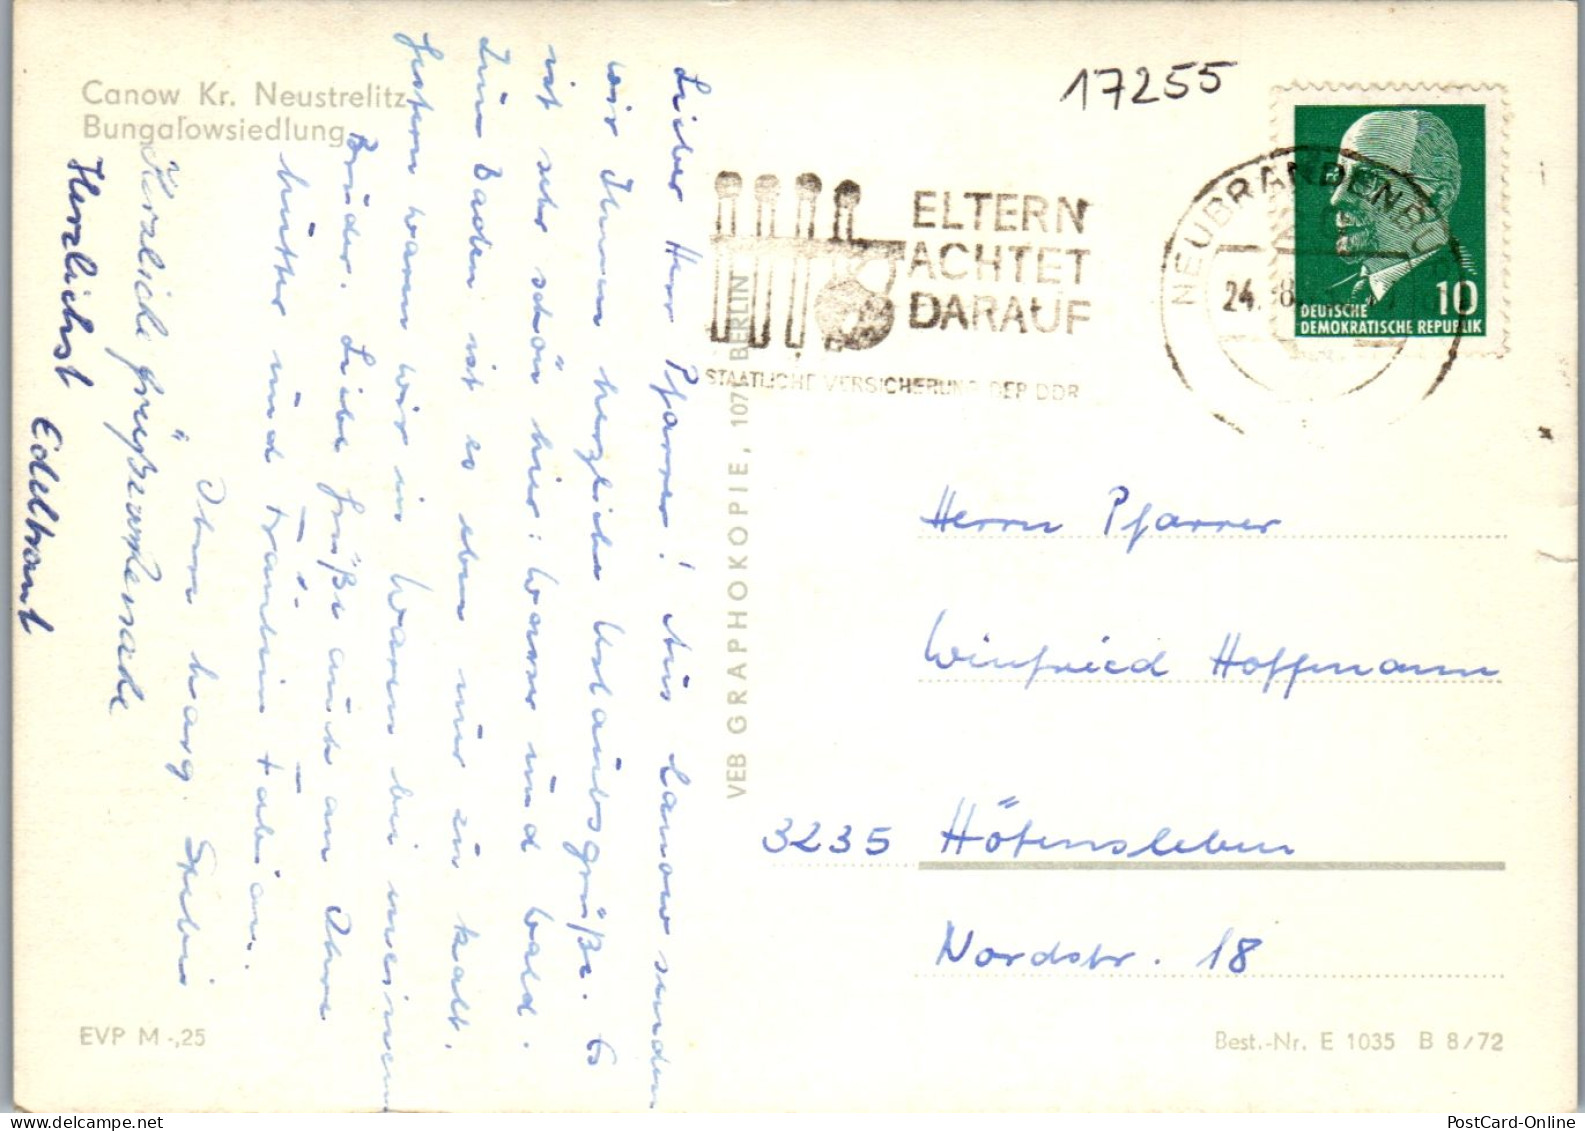 Canow Kr. Neustrelitz
Bungalowsiedlung
17255
ELTERN
ACHTET
DARAUF
STAATLICHE VERSICHERUNG DER DDR
NEUBRANDENBURG
24.
10
DEUTSCHE
DEMOKRATISCHE REPUBLIK
Lieber Herr Pfarrer! Aus Canow senden
wir Ihnen herzliche Urlaubsgrüße. Es
ist sehr schön hier: Wasser und Wald.
Zum Baden ist es eben nur zu kalt.
Gestern waren wir in Waren bei meinem
Bruder. Liebe Grüße auch an Ihre
Mutter und Fräulein Fabian.
Ihre Marg.
Herzliche Grüße
Herzlichst Edeltraut
VEB GRAPHOKOPIE, 1071 BERLIN
Herrn Pfarrer
Winfried Hoffmann
3235 Hötensleben
Nordstr. 18
EVP M -,25
Best.-Nr. E 1035 B 8/72
PostCard-Online